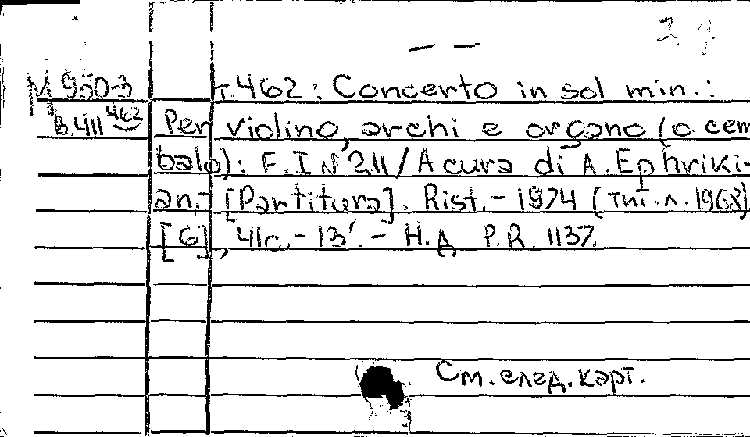 — —
М 950-3 т.462: Concerto in sol min.:
В.411 462 Per violino, archi e organo (o cem
balo): F. I N 211 / A cura di A. Ephriki-
an.- [Partitura]. Rist. - 1974 (тит.л. 1968)
[6], 41c. - 13'. - Н.д. P.R. 1137.
См. след. карт.